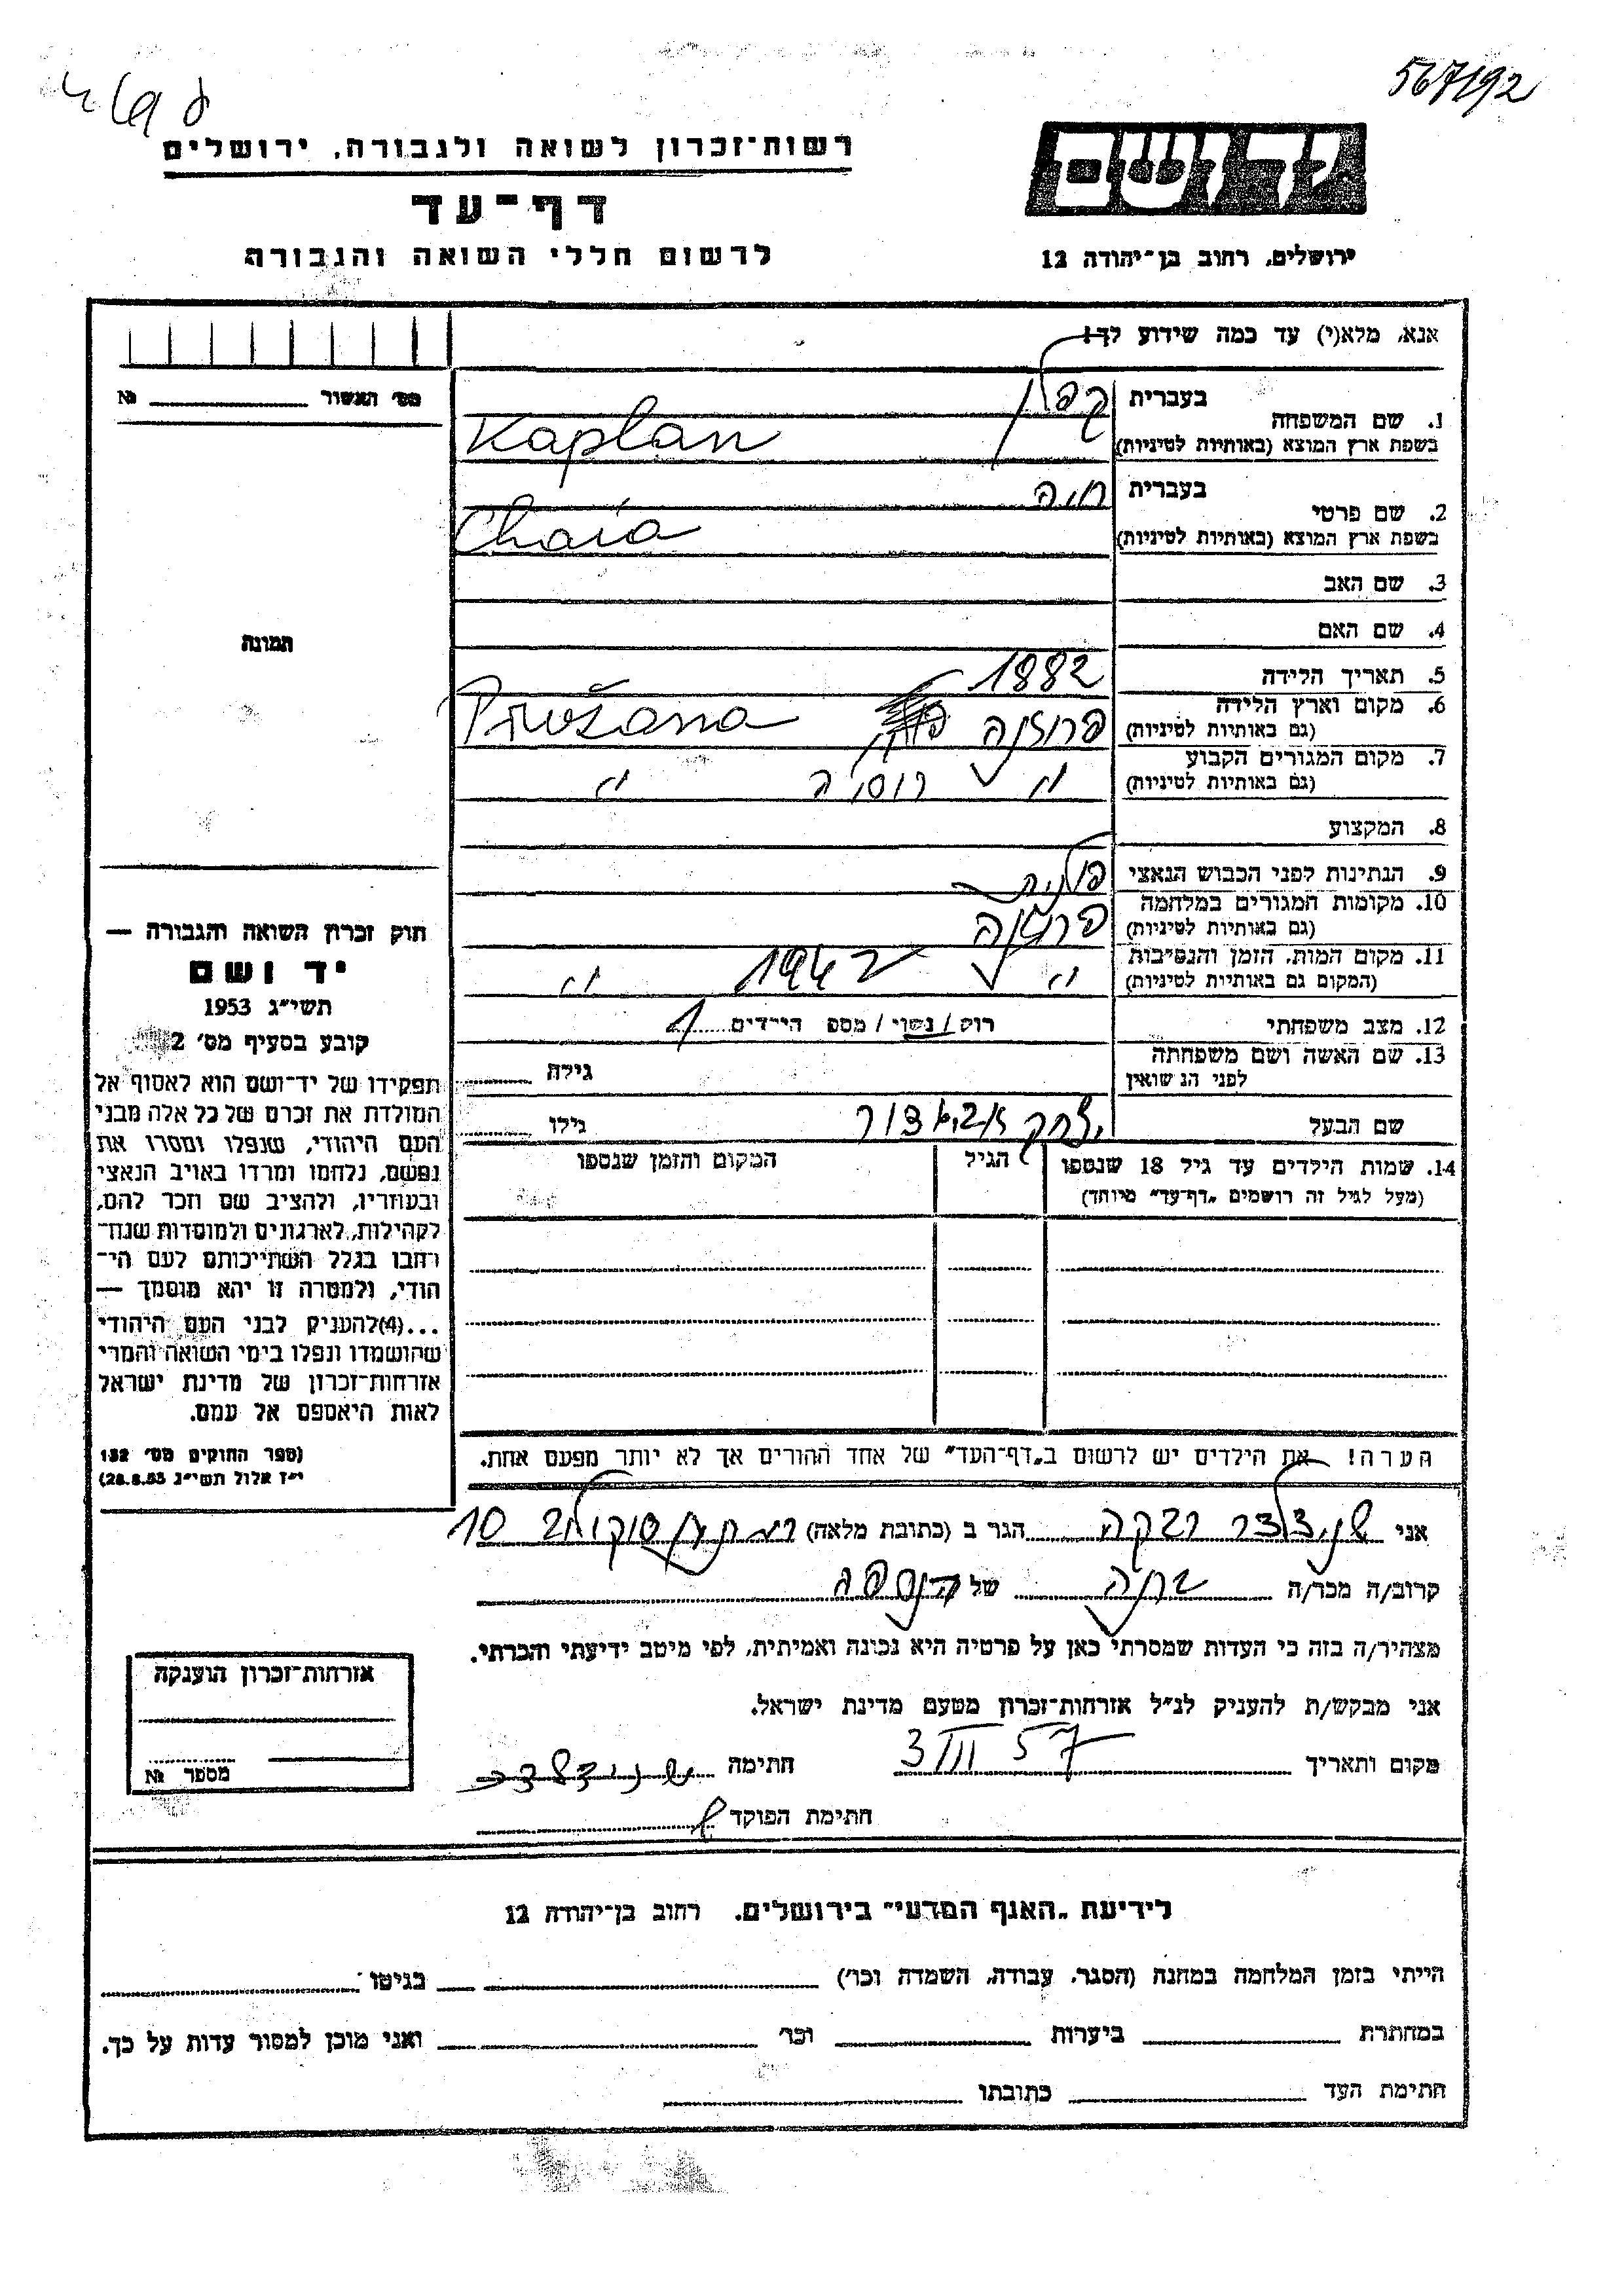 567192
רשות־זכרון לשואה ולגבורה, ירושלים
דף־עד
לרשום חללי השואה והגבורה
יד ושם
ירושלים, רחוב בן־יהודה 12
אנא, מלא(י) עד כמה שידוע לך!
מס׳ האשור № 
1. שם המשפחה בעברית קפלן
בשפת ארץ המוצא (באותיות לטיניות) Kaplan
2. שם פרטי בעברית חיה
בשפת ארץ המוצא (באותיות לטיניות) Chaia
3. שם האב
4. שם האם
5. תאריך הלידה 1882
6. מקום וארץ הלידה פרוזנה Pružana
(גם באותיות לטיניות)
7. מקום המגורים הקבוע
(גם באותיות לטיניות) " רוסיה "
8. המקצוע
9. הנתינות לפני הכבוש הנאצי פולנית
10. מקומות המגורים במלחמה פרוזנה
(גם באותיות לטיניות)
11. מקום המות, הזמן והנסיבות " 1942 "
(המקום גם באותיות לטיניות)
12. מצב משפחתי רוק/נשוי/מספ הילדים 1
13. שם האשה ושם משפחתה גילה
לפני הנשואין
שם הבעל יצחק אביגדור גילו
14. שמות הילדים עד גיל 18 שנספו הגיל המקום והזמן שנספו
(מעל לגיל זה רושמים „דף־עד״ מיוחד)
הערה! את הילדים יש לרשום ב„דף־העד״ של אחד ההורים אך לא יותר מפעם אחת.
תמונה
חוק זכרון השואה והגבורה —
יד ושם
תשי״ג 1953
קובע בסעיף מס׳ 2
תפקידו של יד־ושם הוא לאסוף אל
המולדת את זכרם של כל אלה מבני
העם היהודי, שנפלו ומסרו את
נפשם, נלחמו ומרדו באויב הנאצי
ובעוזריו, ולהציב שם וזכר להם,
לקהילות, לארגונים ולמוסדות שנח־
רחבו בגלל השתייכותם לעם הי־
הודי, ולמטרה זו יהא מוסמך —
...(4)להעניק לבני העם היהודי
שהושמדו ונפלו בימי השואה והמרי
אזרחות־זכרון של מדינת ישראל
לאות היאספם אל עמם.
(ספר החוקים מס׳ 132
י״ז אלול תשי״ג 28.8.53)
אני שניצלר רבקה הגר ב (כתובת מלאה) סוקולוב 10
קרוב/ה מכר/ה של
מצהיר/ה בזה כי העדות שמסרתי כאן על פרטיה היא נכונה ואמיתית, לפי מיטב ידיעתי והכרתי.
אני מבקש/ת להעניק לנ״ל אזרחות־זכרון מטעם מדינת ישראל.
מקום ותאריך 3 III 57 חתימה שניצלר
חתימת הפוקד
אזרחות־זכרון הוענקה
מספר №
לידיעת „האגף המדעי״ בירושלים, רחוב בן־יהודה 12
הייתי בזמן המלחמה במחנה (הסגר, עבודה, השמדה וכר׳) בגיטו
במחתרת ביערות וכר׳ ואני מוכן למסור עדות על כך.
חתימת העד כתובתו